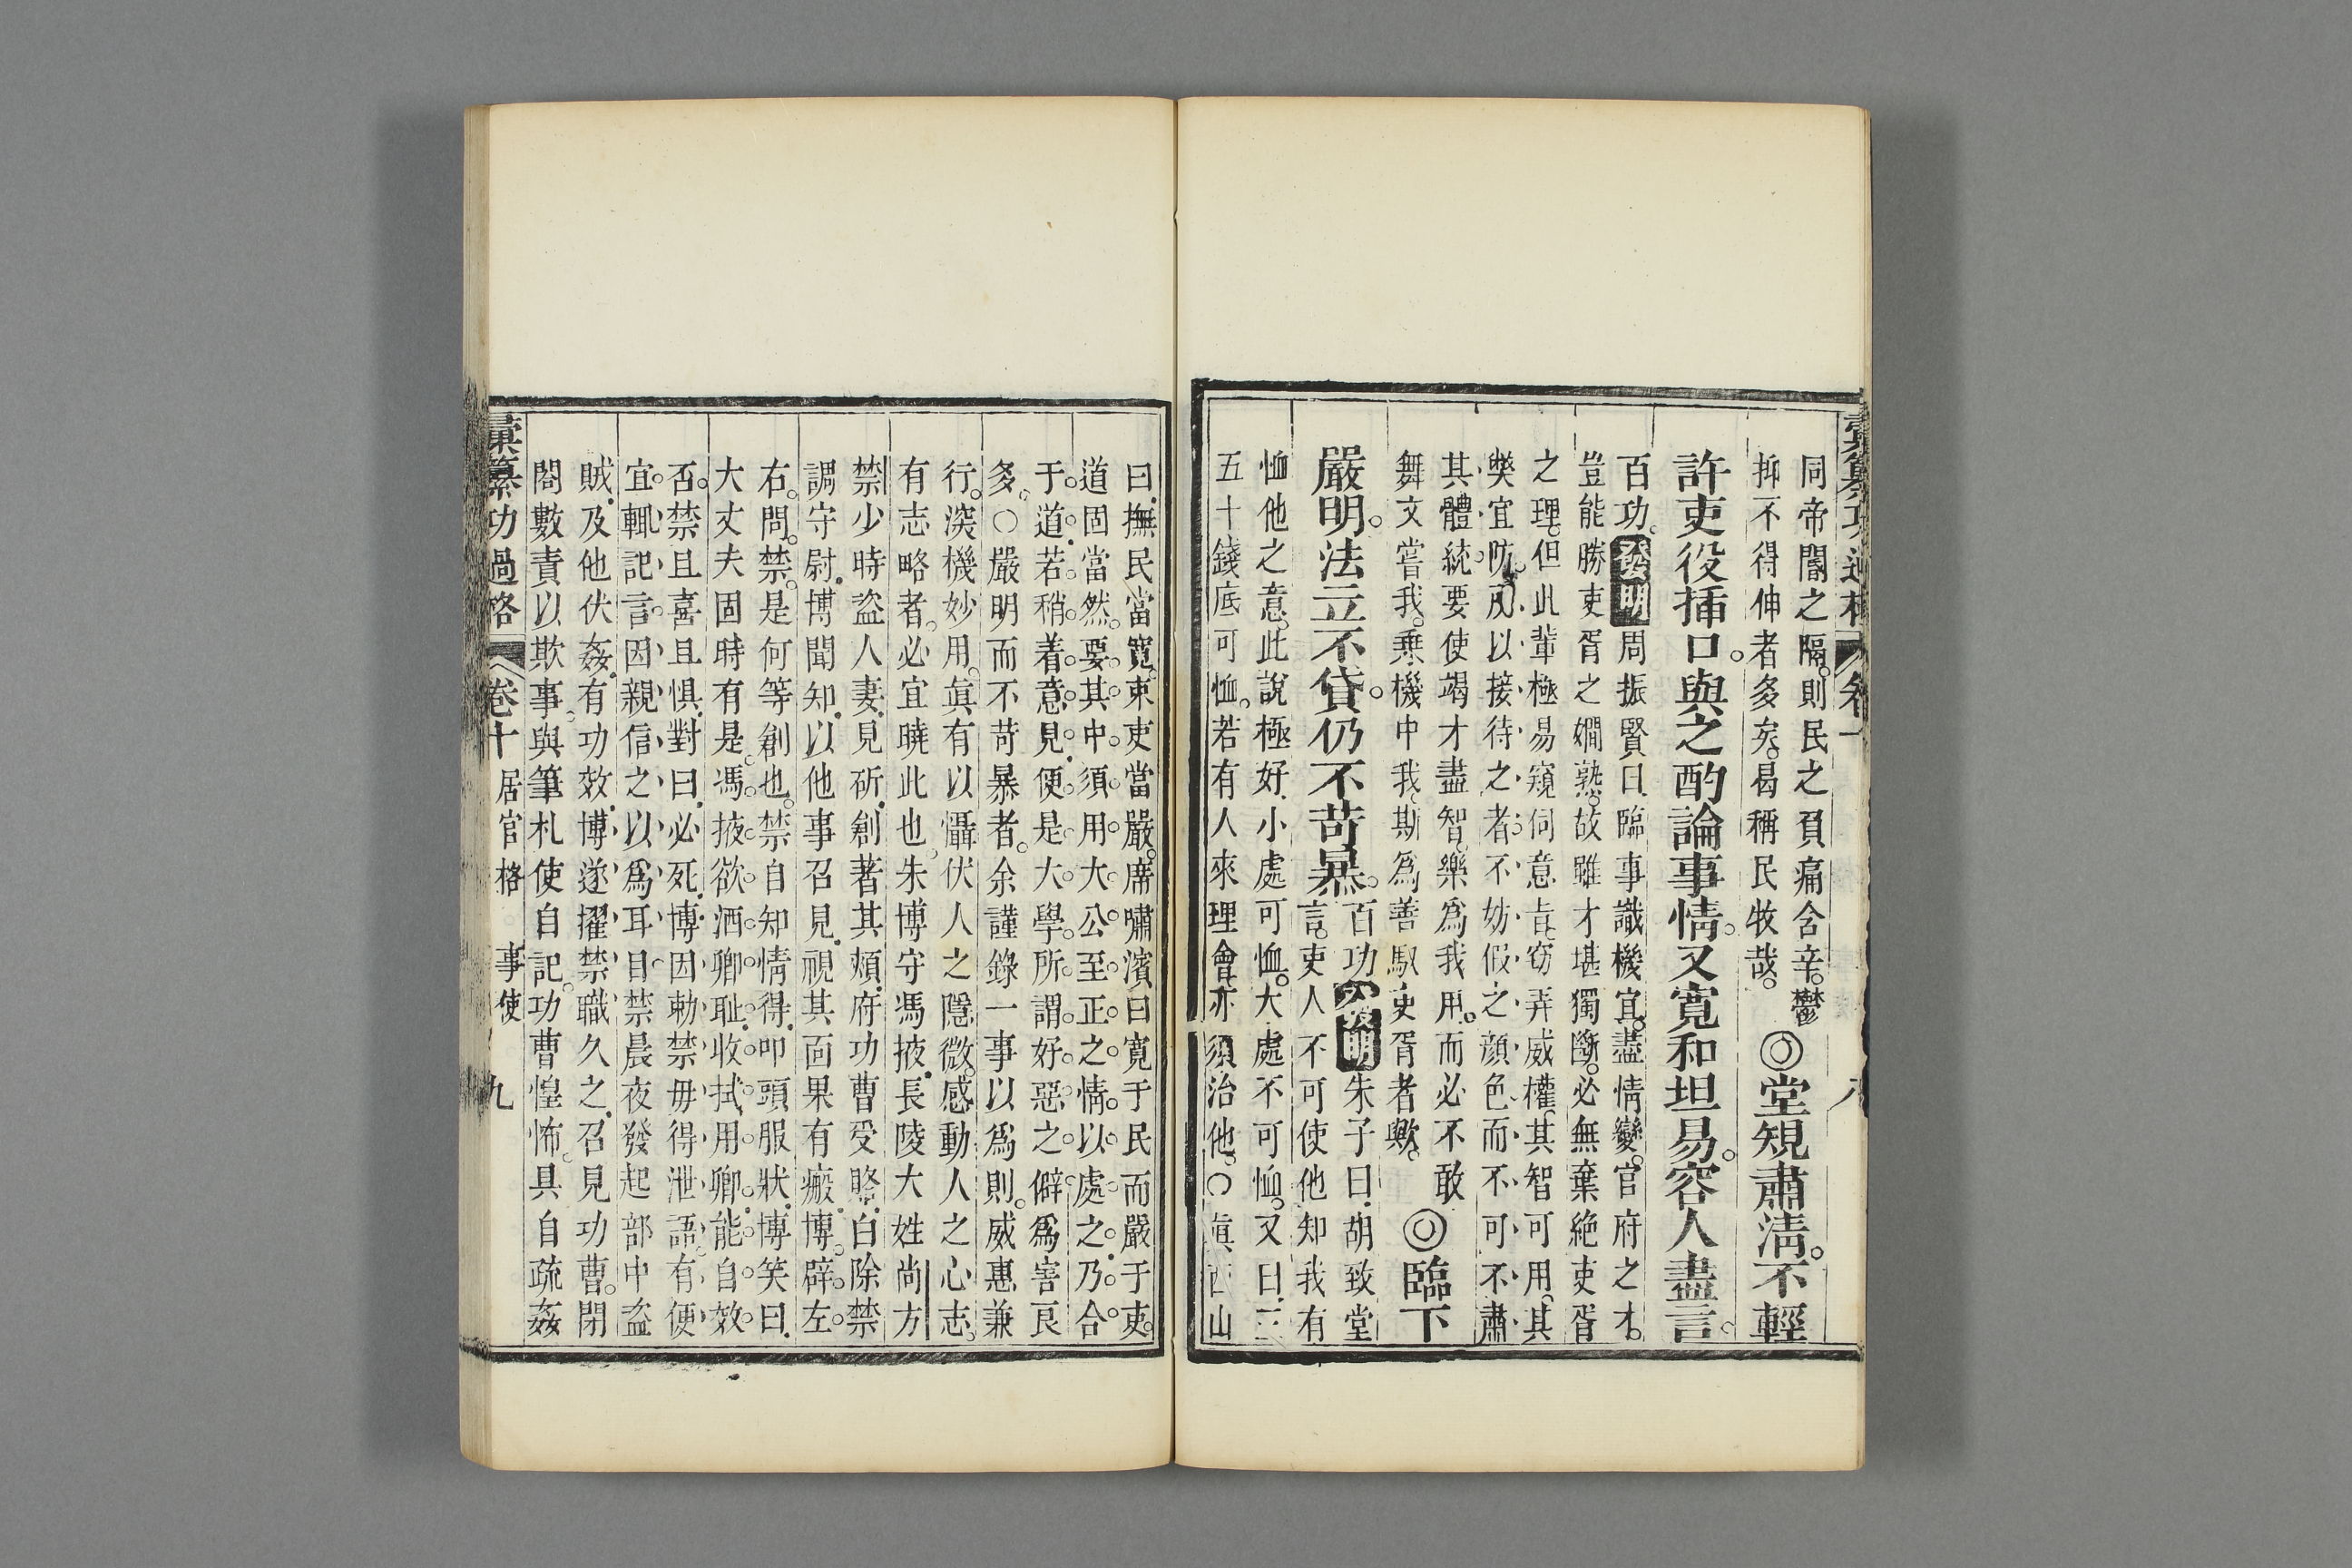 同帝閽之隔。則民之負痛含辛。鬱
抑不得伸者多矣。曷稱民牧哉。
◎堂規肅清。不輕
許吏役插口。與之酌論事情。又寬和坦易。容人盡言。
百功。發明周振賢曰。臨事識機宜。盡情變。官府之才。
豈能勝吏胥之嫺熟。故雖才堪獨斷。必無棄絕吏胥
之理。但此輩極易窺伺意旨。窃弄威權。其智可用。其
獘宜防。所以接待之者。不妨假之顔色。而不可不肅
其體統。要使竭才盡智。樂爲我用。而必不敢
舞文嘗我。乗機中我。斯爲善馭吏胥者歟。
◎臨下
嚴明。法立不貸。仍不苛暴。
百功。發明朱子曰。胡致堂
言。吏人不可使他知我有
恤他之意。此說極好。小處可恤。大處不可恤。又曰。三
五十錢底可恤。若有人來理會。亦須治他。○眞西山
曰。撫民當寬。束吏當嚴。席嘯濱曰。寛于民而嚴于吏。
道固當然。要其中須用大公至正之情。以處之。乃合
于道。若稍着意見。便是大學所謂好惡之僻。爲害良
多。○嚴明而不苛暴者。余謹錄一事以爲則。威惠兼
行。深機妙用。眞有以懾伏人之隱微。感動人之心志。
有志略者。必宜曉此也。朱博守馮掖。長陵大姓尚方
禁少時盜人妻。見斫。創著其頰。府功曹受賂。白除禁
調守尉。博聞知。以他事召見。視其面果有瘢。博辟左
右。問。禁。是何等創也。禁自知情得。叩頭服狀。博笑曰。
大丈夫固時有是。馮掖欲洒卿耻。收拭用卿。能自效
否。禁且喜且惧。對曰。必死。博因勅禁毋得泄語。有便
宜。輒記言。因親信之。以爲耳目。禁晨夜發起部中盜
賊。及他伏姦。有功效。博遂擢禁職。久之。召見功曹。閉
閤數責以欺事。與筆札使自記。功曹惶怖。具自疏姦
彙纂功過格 卷十 居官格 事使 九